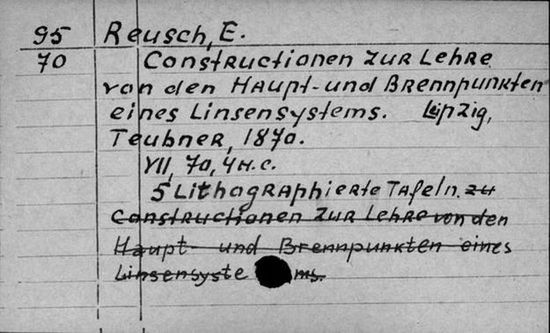 95 Reusch, E.
70 Constructionen zur Lehre
von den Haupt- und Brennpunkten
eines Linsensystems. Leipzig,
Teubner, 1870.
VII, 70, 4 н. с.
5 Lithographierte Tafeln. zu
Constructionen zur Lehre von den
Haupt- und Brennpunkten eines
Linsensyste ms.